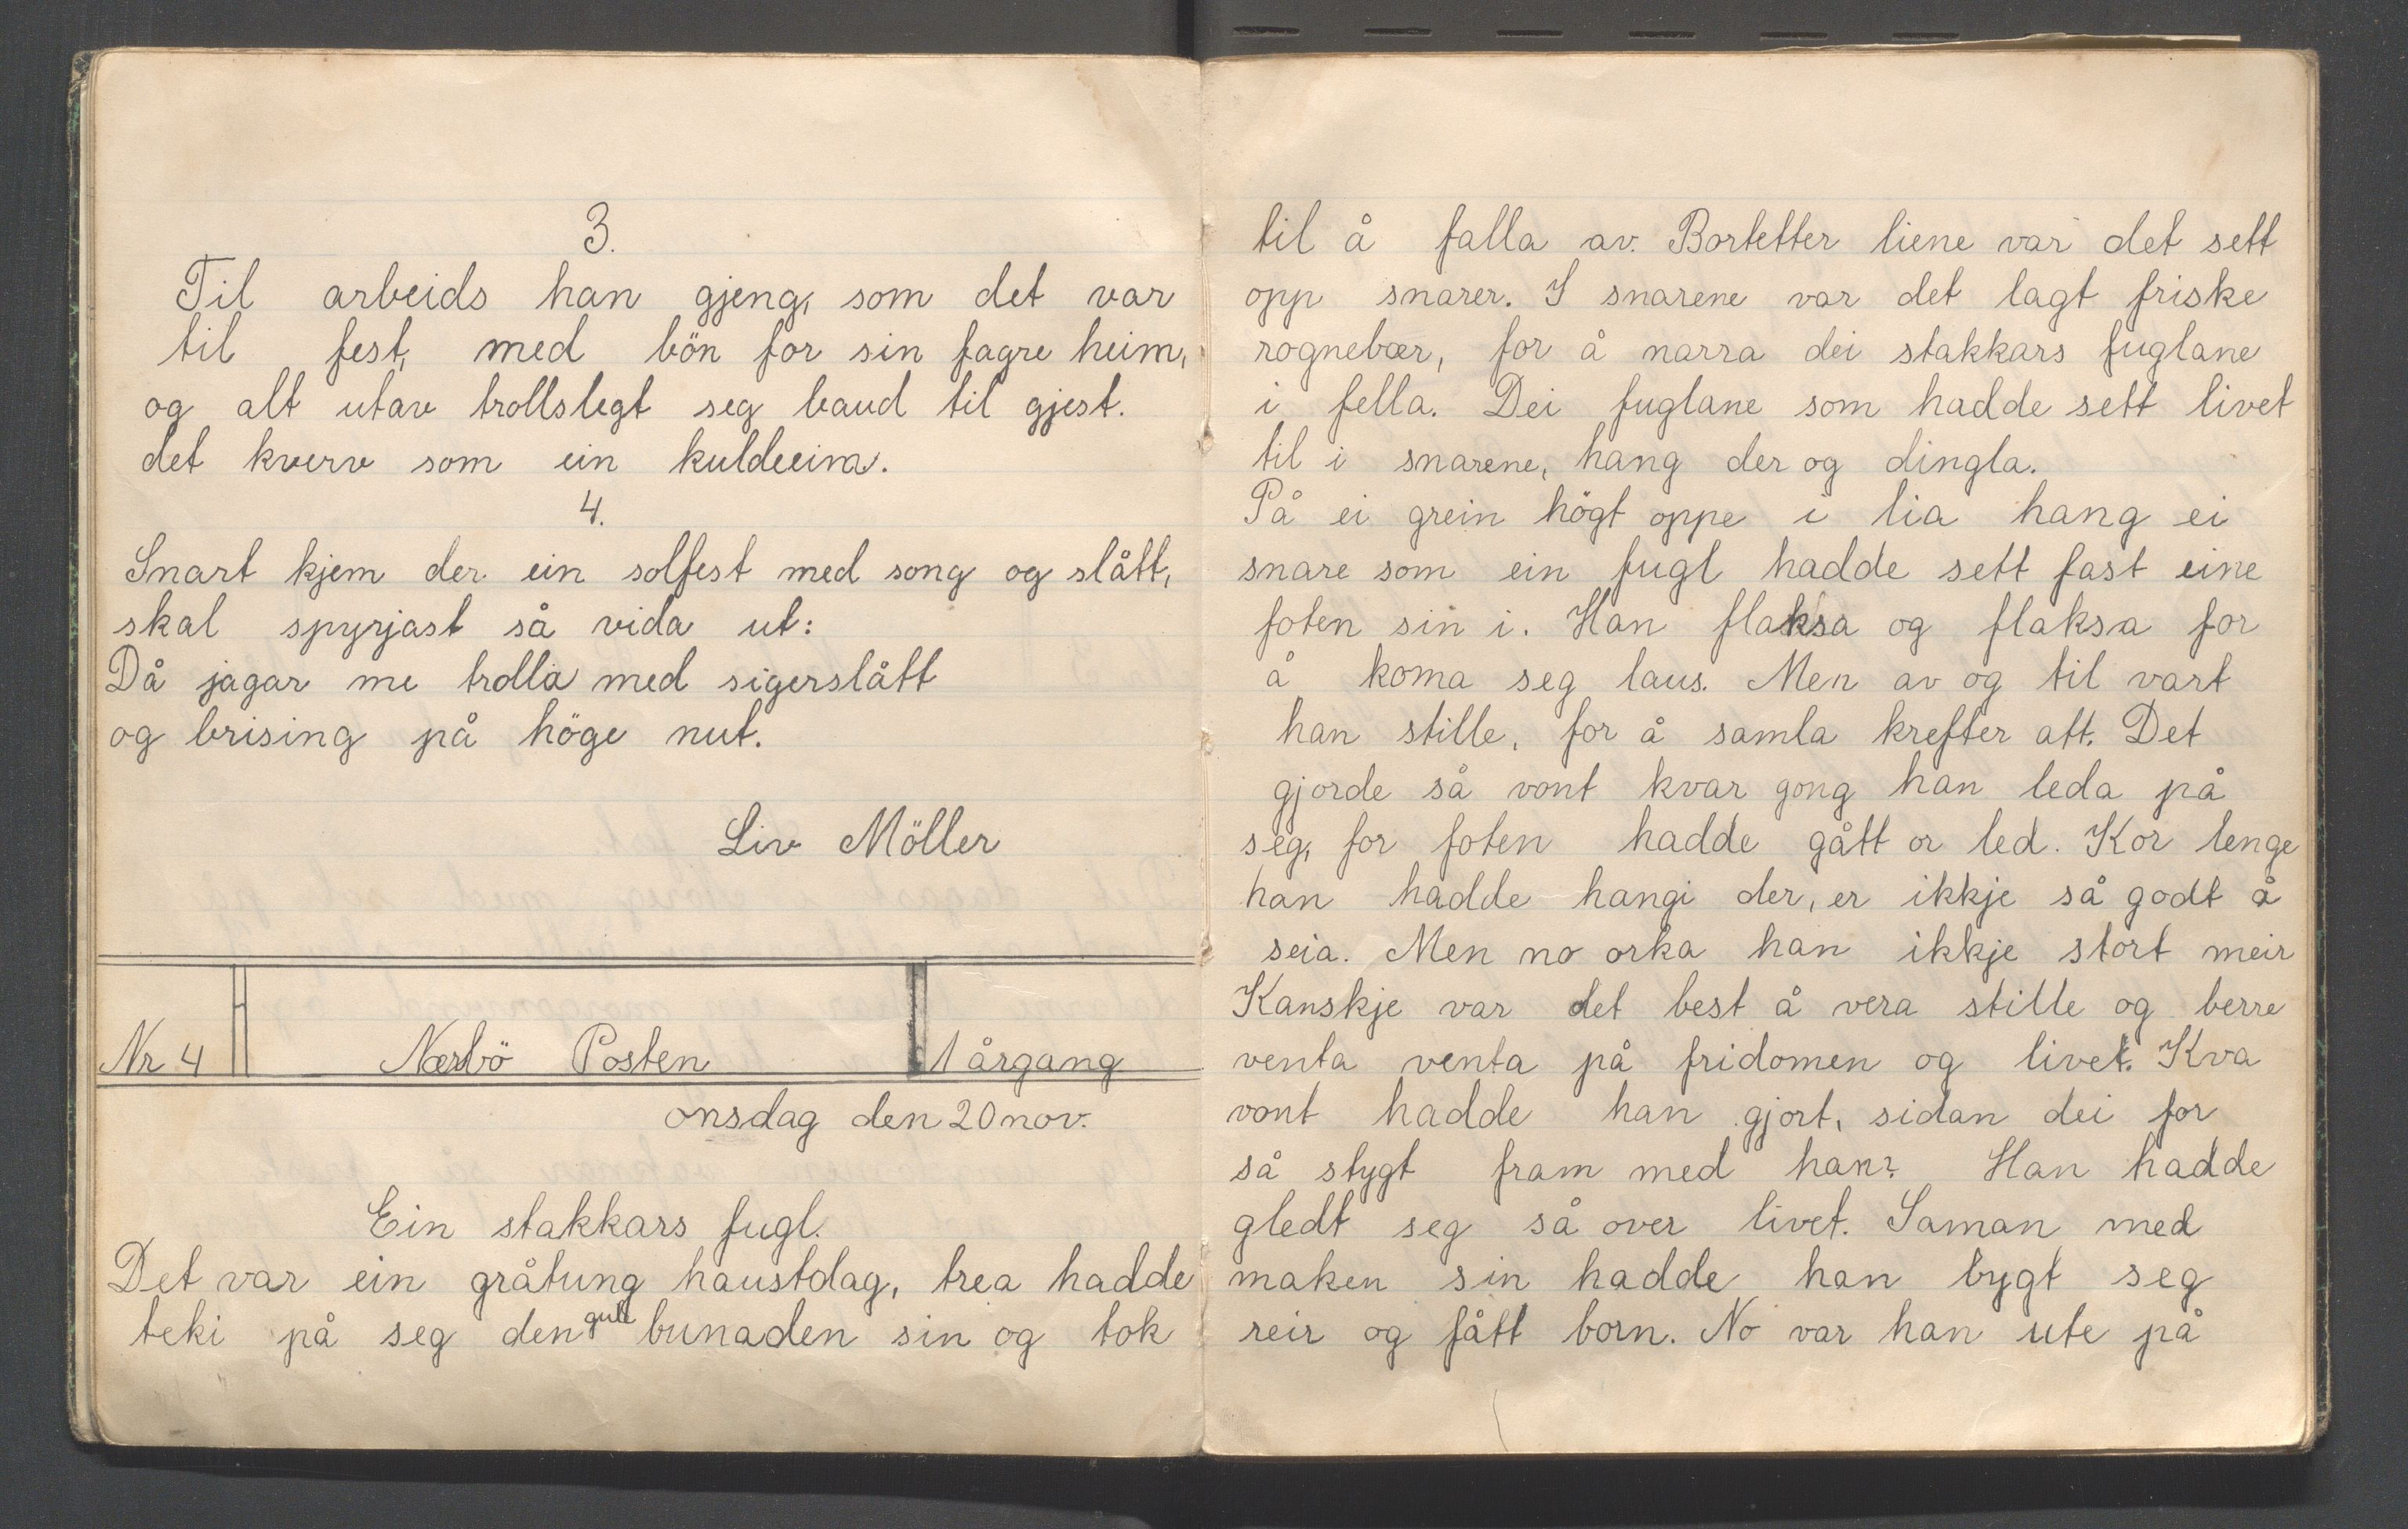 3.
Til arbeids han gjeng, som det var
til fest, med bön for sin fagre heim,
og alt utav trollslegt seg baud til gjest.
det kverv som ein kuldeeim.
4.
Snart kjem der ein solfest med song og slått,
skal spyrjast så vida ut:
Då jagar me trolla med sigerslått
og brising på höge nut.
Liv Möller
Nr 4 Nærbö Posten 1 årgang
onsdag den 20 nov.
Ein stakkars fugl.
Det var ein gråtung haustdag, trea hadde
teki på seg den gule bunaden sin og tok
til å falla av. Bortetter liene var det sett
opp snarer. I snarene var det lagt friske
rognebær, for å narra dei stakkars fuglane
i fella. Dei fuglane som hadde sett livet
til i snarene, hang der og dingla.
På ei grein högt oppe i lia hang ei
snare som ein fugl hadde sett fast eine
foten sin i. Han flaksa og flaksa for
å koma seg laus. Men av og til vart
han stille, for å samla krefter att. Det
gjorde så vont kvar gong han leda på
seg, for foten hadde gått or led. Kor lenge
han hadde hangi der, er ikkje så godt å
seia. Men no orka han ikkje stort meir
Kanskje var det best å vera stille og berre
venta venta på fridomen og livet. Kva
vont hadde han gjort, sidan dei for
så stygt fram med han? Han hadde
gledt seg så over livet. Saman med
maken sin hadde han bygt seg
reir og fått born. No var han ute på